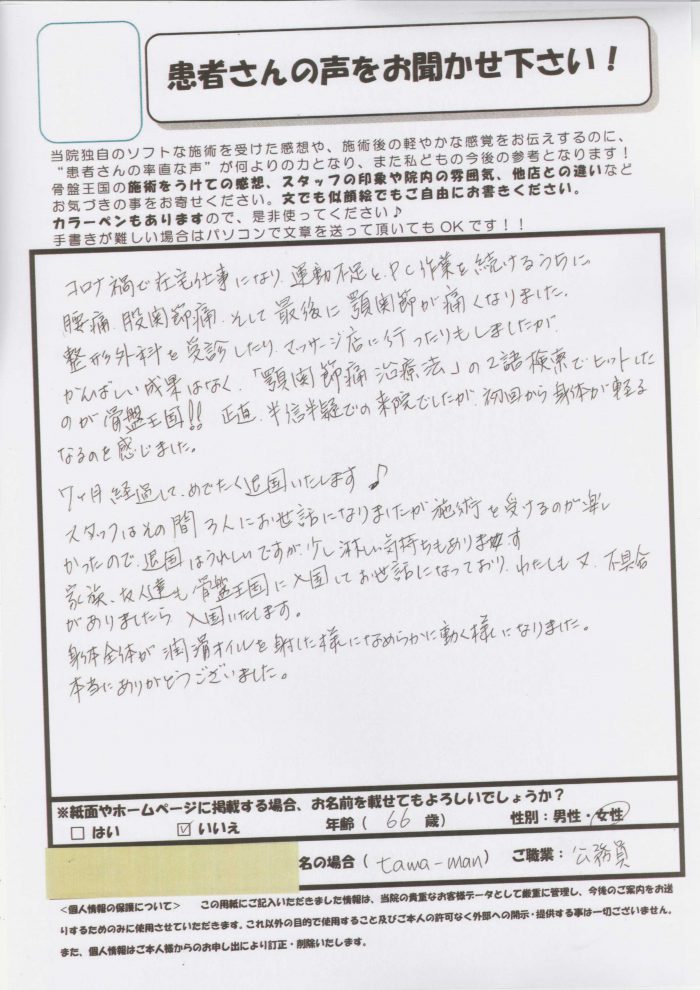 患者さんの声をお聞かせ下さい！
当院独自のソフトな施術を受けた感想や、施術後の軽やかな感覚をお伝えするのに、
“患者さんの率直な声”が何よりの力となり、また私どもの今後の参考となります！
骨盤王国の施術をうけての感想、スタッフの印象や院内の雰囲気、他店との違いなど
お気づきの事をお寄せください。文でも似顔絵でもご自由にお書きください。
カラーペンもありますので、是非使ってください♪
手書きが難しい場合はパソコンで文章を送って頂いてもOKです！！
コロナ禍で在宅仕事になり、運動不足と、PC作業を続けるうちに
腰痛、股関節痛、そして最後に顎関節が痛くなりました。
整形外科を受診したり、マッサージ店に行ったりもしましたが、
かんばしい成果はなく、「顎関節痛 治療法」の2語検索でヒットした
のが骨盤王国!! 正直、半信半疑での来院でしたが、初回から身体が軽る
なるのを感じました。
7ヶ月経過して、めでたく退国いたします♪
スタッフはその間3人にお世話になりましたが施術を受けるのが楽し
かったので、退国はうれしいですが、少し淋しい気持ちもあります
家族、友人達も骨盤王国に入国してお世話になっており、わたしも又、不具合
がありましたら入国いたします。
身体全体が潤滑オイルを射した様になめらかに動く様になりました。
本当にありがとうございました。
※紙面やホームページに掲載する場合、お名前を載せてもよろしいでしょうか？
□ はい ☑ いいえ 年齢（ 66 歳） 性別：男性・女性
名の場合（ tawa-man） ご職業： 公務員
＜個人情報の保護について＞ この用紙にご記入いただきました情報は、当院の貴重なお客様データとして厳重に管理し、今後のご案内をお送
りするためのみに使用させていただきます。これ以外の目的で使用すること及びご本人の許可なく外部への開示・提供する事は一切ございません。
また、個人情報はご本人様からのお申し出により訂正・削除いたします。